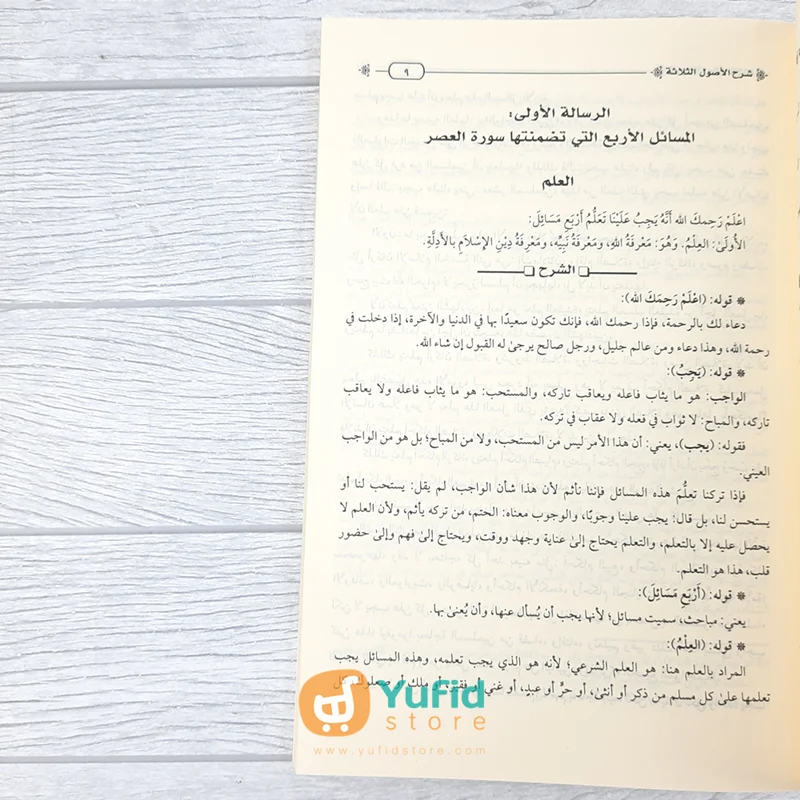 شرح الأصول الثلاثة
٩
الرسالة الأولى:
المسائل الأربع التي تضمنتها سورة العصر
العلم
اعْلَمْ رَحِمكَ الله أَنَّهُ يَجِبُ عَلَيْنَا تَعَلُّمُ أَرْبَعِ مَسَائِلَ:
الأُولَىٰ: العِلمُ. وَهُوَ: مَعْرِفَةُ اللهِ، ومَعْرِفَةُ نَبِيِّه، ومَعْرِفَةُ دِيْنِ الإِسْلَامِ بِالأَدِلَّةِ.
الشرح
* قوله: (اعْلَمْ رَحِمَكَ الله):
دعاء لك بالرحمة، فإذا رحمك الله، فإنك تكون سعيدًا بها في الدنيا والآخرة، إذا دخلت في
رحمة الله، وهذا دعاء ومن عالم جليل، ورجل صالح يرجىٰ له القبول إن شاء الله.
* قوله: (يَجِبُ):
الواجب: هو ما يثاب فاعله ويعاقب تاركه، والمستحب: هو ما يثاب فاعله ولا يعاقب
تاركه، والمباح: لا ثواب في فعله ولا عقاب في تركه.
فقوله: (يجب)، يعني: أن هذا الأمر ليس من المستحب، ولا من المباح؛ بل هو من الواجب
العيني.
فإذا تركنا تعلُّمَ هذه المسائل فإننا نأثم لأن هذا شأن الواجب، لم يقل: يستحب لنا أو
يستحسن لنا، بل قال: يجب علينا وجوبًا، والوجوب معناه: الحتم، من تركه يأثم، ولأن العلم لا
يحصل عليه إلا بالتعلم، والتعلم يحتاج إلىٰ عناية وجهد ووقت، ويحتاج إلىٰ فهم وإلىٰ حضور
قلب، هذا هو التعلم.
* قوله: (أَرْبَعِ مَسَائِلَ):
يعني: مباحث، سميت مسائل؛ لأنها يجب أن يُسأل عنها، وأن يُعنىٰ بها.
* قوله: (العِلمُ):
المراد بالعلم هنا: هو العلم الشرعي؛ لأنه هو الذي يجب تعلمه، وهذه المسائل يجب
تعلمها علىٰ كل مسلم من ذكر أو أنثىٰ، أو حرٍّ أو عبدٍ، أو غني أو فقير، أو ملك أو صعلوك، كل
Yufid
store
www.yufidstore.com